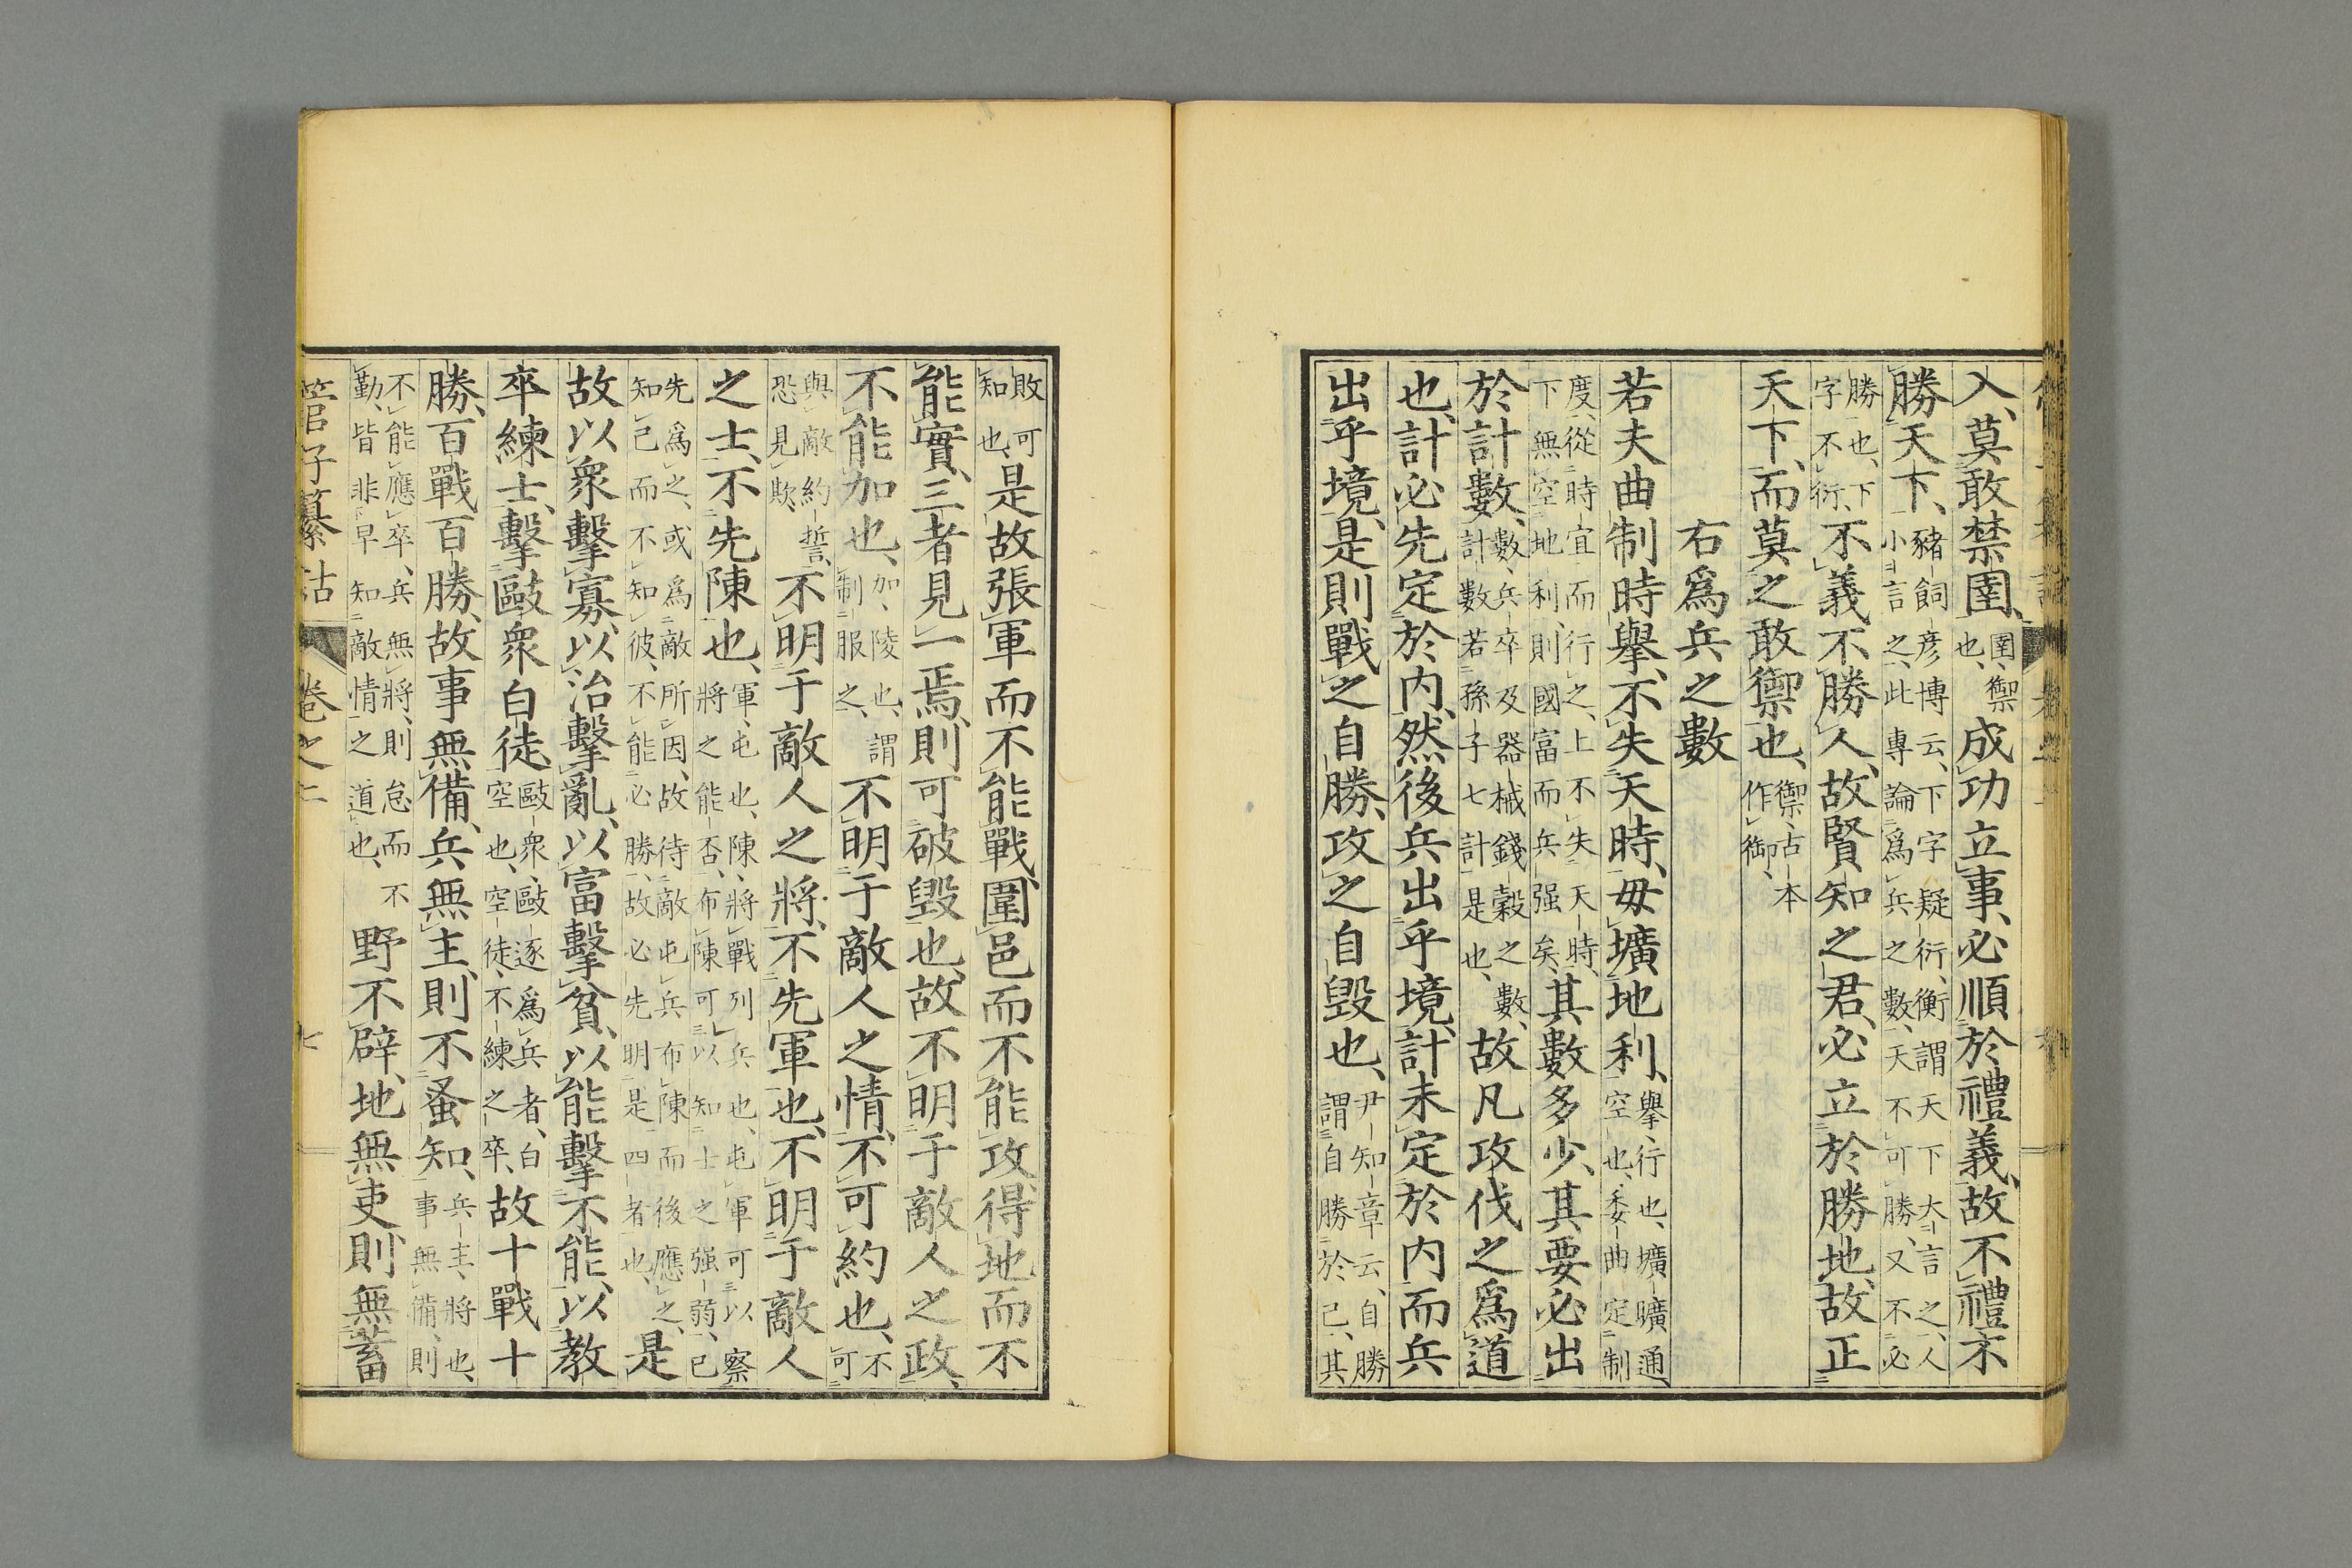 入、莫敢禁圉、圉、禦也、成功立事、必順於禮義、故不禮不
勝天下、豬飼彥博云、下字疑衍、衡謂天下大言之、人小言之、此專論爲兵之數、天不可勝、又不必
勝也、下字不衍、不義不勝人、故賢知之君、必立於勝地、故正
天下、而莫之敢禦也、禦、古本作御、
右爲兵之數
若夫曲制時擧、不失天時、毋壙地利、擧、行也、壙曠通、空也、委曲定制
度、從時宜而行之、上不失天時、下無空地利、則國富而兵强矣、其數多少、其要必出
於計數、數、兵卒及器械錢穀之數、計數若孫子七計是也、故凡攻伐之爲道
也、計必先定於內、然後兵出乎境、計未定於內而兵
出乎境、是則戰之自勝、攻之自毀也、尹知章云、自勝謂自勝於己、其
敗可知也、是故張軍而不能戰、圍邑而不能攻、得地而不
能實、三者見一焉、則可破毀也、故不明于敵人之政、
不能加也、加、陵也、謂制服之、不明于敵人之情、不可約也、不可
與敵約誓、恐見欺、不明于敵人之將、不先軍也、不明于敵人
之士、不先陳也、軍、屯也、陳、將戰列兵也、屯軍可以察將之能否、布陳可以知士之强弱、已
先爲之、或爲敵所因、故待敵屯兵布陳而後應之、知己而不知彼、不能必勝、故必先明是四者也、是
故以衆擊寡、以治擊亂、以富擊貧、以能擊不能、以教
卒練士、擊敺衆白徒、敺衆、敺逐爲兵者、白空也、空徒、不練之卒、故十戰十
勝、百戰百勝、故事無備、兵無主、則不蚤知、兵主、將也、事無備、則
不能應卒、兵無將、則怠而不勤、皆非早知敵情之道也、野不辟、地無吏、則無蓄
管子纂詁 卷之二 七